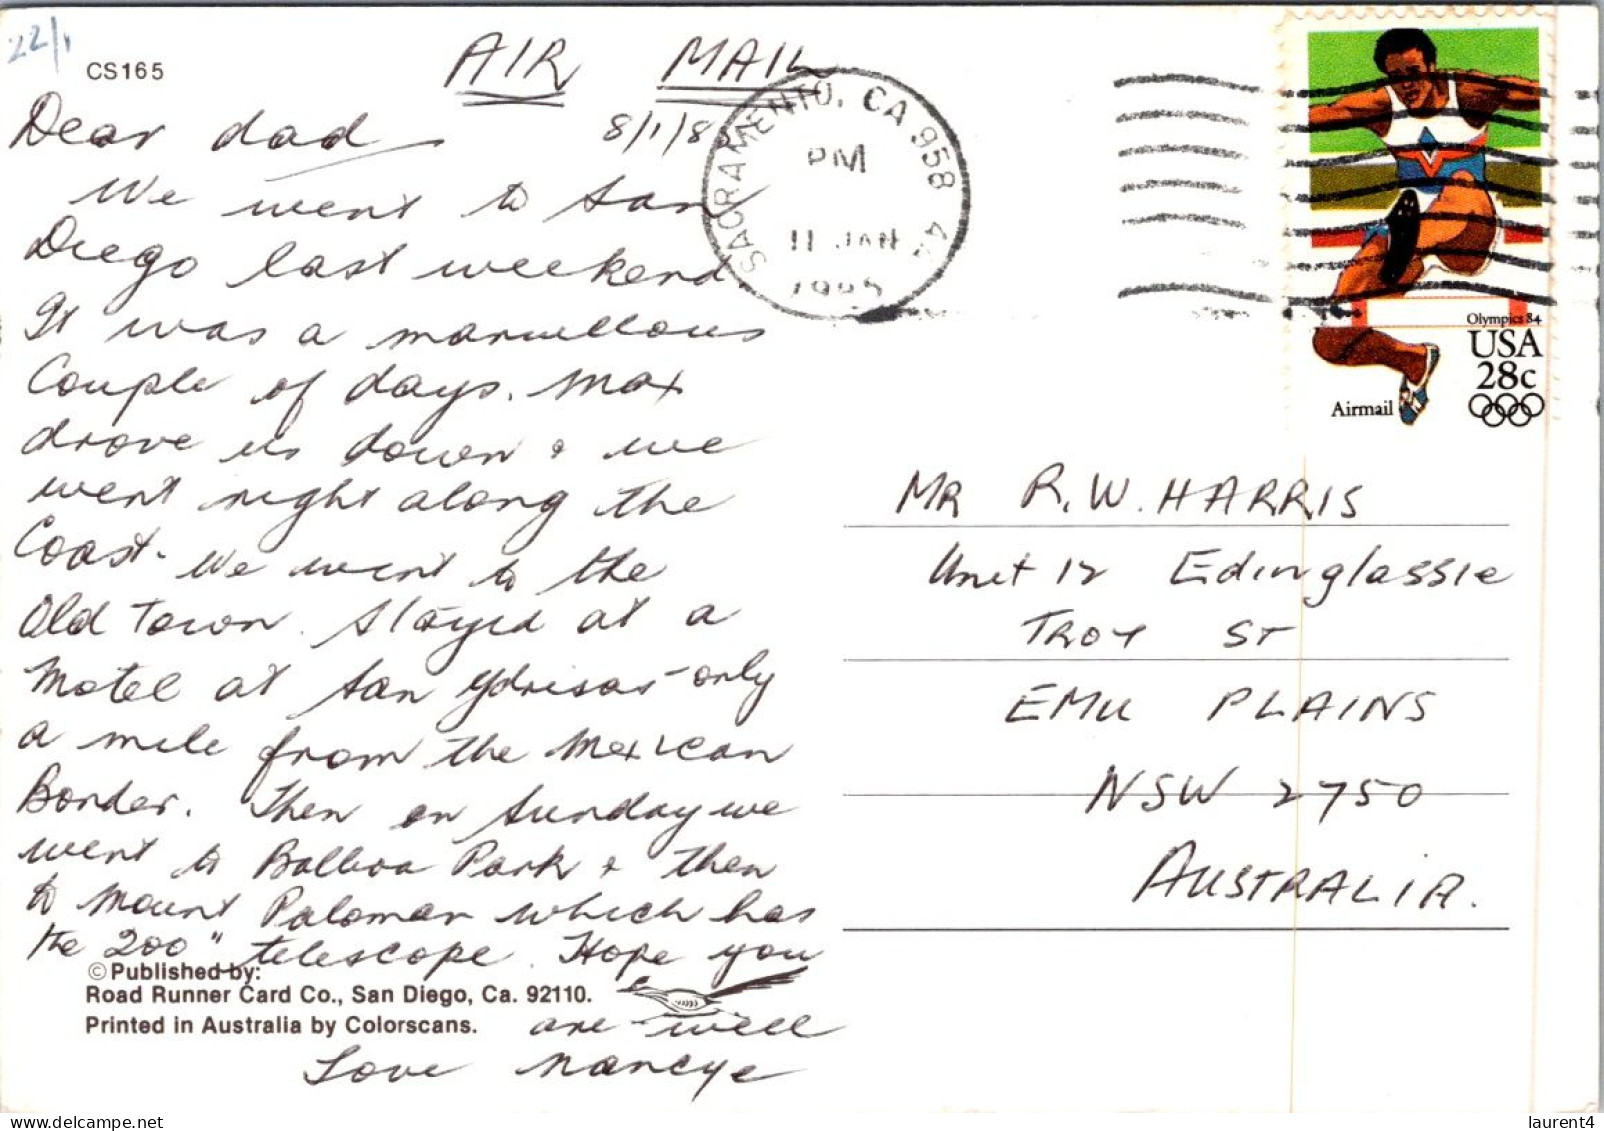 22/1
CS165
AIR MAIL
8/1/85
Dear dad
We went to San
Diego last weekend.
It was a marvellous
Couple of days. Max
drove us down & we
went right along the
Coast. We went to the
Old Town. Stayed at a
Motel at San Ydrisas - only
a mile from the Mexican
Border. Then on Sunday we
went to Balboa Park & then
to Mount Palomar which has
the 200" telescope. Hope you
are well
Love Nancye
©Published by:
Road Runner Card Co., San Diego, Ca. 92110.
Printed in Australia by Colorscans.
SACRAMENTO, CA 958
PM
11 JAN
1985
Olympics 84
USA
28c
Airmail
MR R.W. HARRIS
Unit 12 Edinglassie
TROY ST
EMU PLAINS
NSW 2750
AUSTRALIA.
laurent4